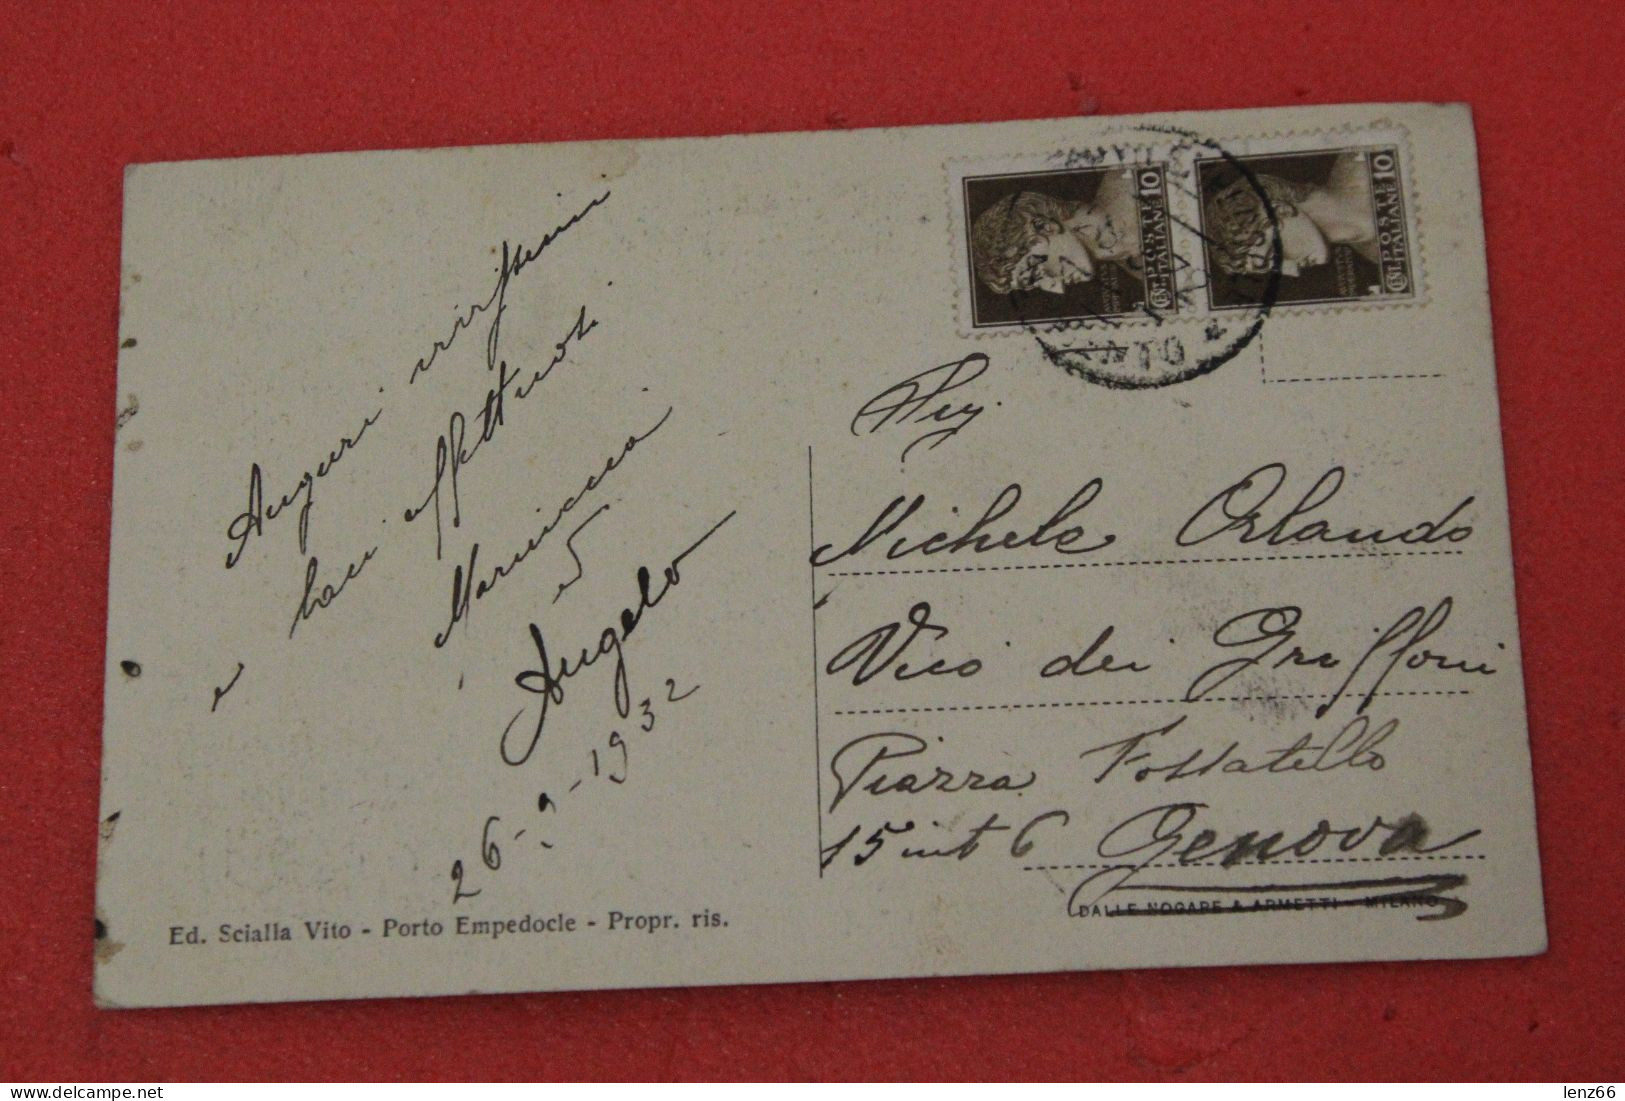 Auguri vivissimi
e baci affettuosi
Mariuccia
e
Angelo
26-9-1932
Ed. Scialla Vito - Porto Empedocle - Propr. ris.
POSTE ITALIANE
CENT. 10
POSTE ITALIANE
CENT. 10
Michele Orlando
Vico dei Griffoni
Piazza Fossatello
15 int 6 Genova
DALLE NOGARE & ARMETTI - MILANO
lenz66